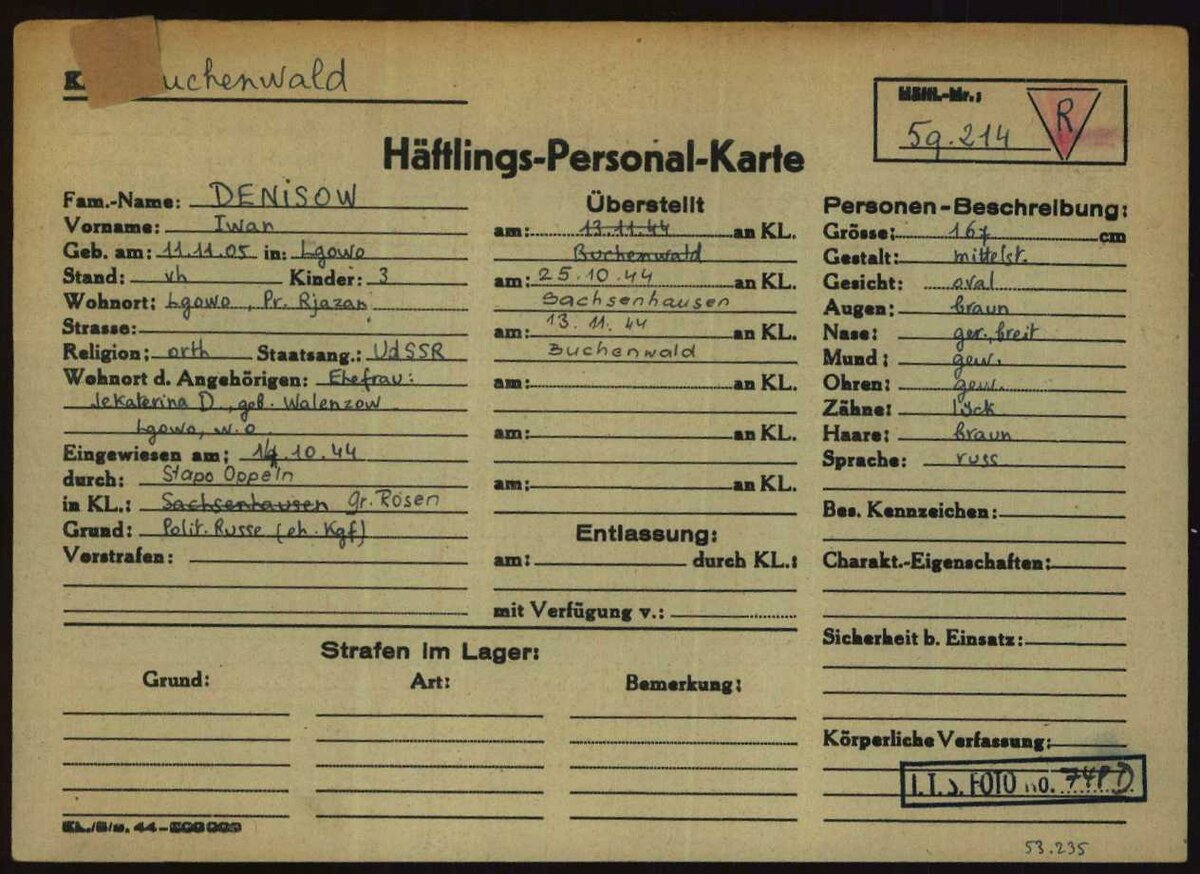 K. Buchenwald
Häftl.-Nr.:
59.214 R
Häftlings-Personal-Karte
Fam.-Name: DENISOW
Vorname: Iwan
Geb. am: 11.11.05 in: Lgowo
Stand: vh Kinder: 3
Wohnort: Lgowo, Pr. Rjazan
Strasse:
Religion: orth Staatsang.: UdSSR
Wohnort d. Angehörigen: Ehefrau:
Jekaterina D., geb. Walenzow
Lgowo, w.o.
Eingewiesen am: 14.10.44
durch: Stapo Oppeln
in KL.: Sachsenhausen Gr. Rosen
Grund: Polit. Russe (eh. Kgf)
Vorstrafen:
Überstellt
am: 13.11.44 an KL.
Buchenwald
am: 25.10.44 an KL.
Sachsenhausen
am: 13.11.44 an KL.
Buchenwald
am: an KL.
am: an KL.
am: an KL.
Entlassung:
am: durch KL.:
mit Verfügung v.:
Personen-Beschreibung:
Grösse: 167 cm
Gestalt: mittelst.
Gesicht: oval
Augen: braun
Nase: ger., breit
Mund: gew.
Ohren: gew.
Zähne: lück
Haare: braun
Sprache: russ
Bes. Kennzeichen:
Charakt.-Eigenschaften:
Sicherheit b. Einsatz:
Körperliche Verfassung:
Strafen im Lager:
Grund: Art: Bemerkung:
I.T.S. FOTO no.
53.235